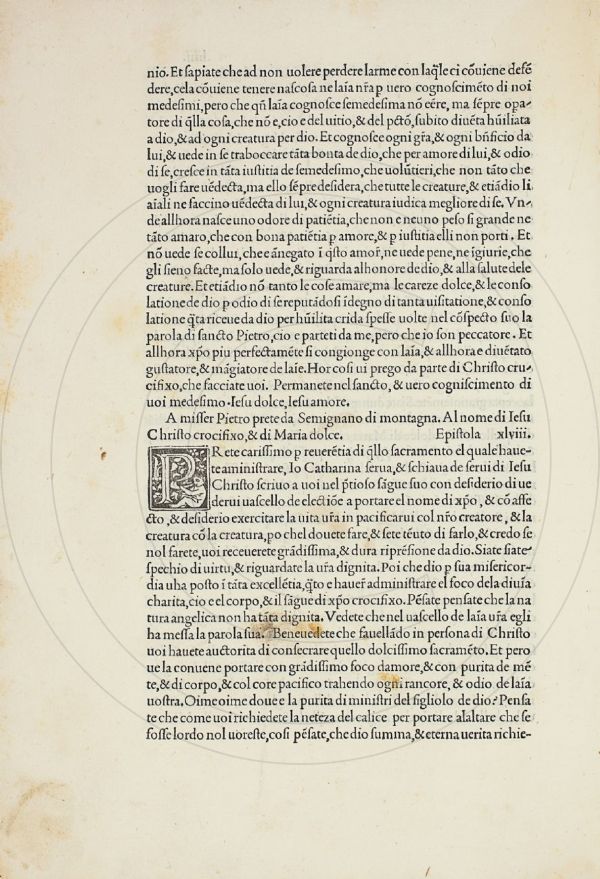 nio. Et sapiate che ad non uolere perdere larme con laq̃le ci cõuiene defẽ
dere, cela cõuiene tenere nascosa ne laĩa nr̃a p uero cognoscimẽto di noi
medesimi, pero che qñ laĩa cognosce se medesima nõ eẽre, ma sẽpre opa-
tore di q̃lla cosa, che nõ e, cio e del uitio, & del pctõ, subito diuẽta hũiliata
a dio, & ad ogni creatura per dio. Et cognosce ogni gr̃a, & ogni bñficio da
lui, & uede in se traboccare tãta bonta de dio, che per amore di lui, & odio
di se, cresce in tãta iustitia de semedesimo, che uolũtieri, che non tãto che
uogli fare uẽdecta, ma ello sẽpre desidera, che tutte le creature, & etiãdio li
aĩali ne faccino uẽdecta di lui, & ogni creatura iudica megliore di se. Vn-
de allhora nasce uno odore di patiẽtia, che non e neuno peso si grande ne
tãto amaro, che con bona patiẽtia p amore, & p iustitia elli non porti. Et
nõ uede se collui, che e ãnegato ĩ q̃sto amor̃, ne uede pene, ne igiurie, che
gli sieno facte, ma solo uede, & riguarda al honore de dio, & alla salute dele
creature. Et etiãdio nõ tanto le cose amare, ma le careze dolce, & le conso
latione de dio p odio di se reputãdosi ĩdegno di tanta uisitatione, & conso
latione q̃ta riceue da dio per hũilita crida spesse uolte nel cõspecto suo la
parola di sancto Pietro, cio e parteti da me, pero che io son peccatore. Et
allhora xp̃o piu perfectamẽte si congionge con laĩa, & allhora e diuẽtato
gustatore, & mãgiatore de laĩe. Hor cosi ui prego da parte di Christo cru-
cifixo, che facciate uoi. Permanete nel sancto, & uero cogniscimento di
uoi medesimo. Iesu dolce, Iesu amore.
A misser Pietro prete da Semignano di montagna. Al nome di Iesu
Christo crocifixo, & di Maria dolce. Epistola xlviii.
PRete carissimo p reuerẽtia di q̃llo sacramento el quale haue-
te aministrare, Io Catharina serua, & schiaua de serui di Iesu
Christo scriuo a uoi nel p̃tioso sãgue suo con desiderio di ue
derui uascello de electiõe a portare el nome di xp̃o, & cõ affe
cto, & desiderio exercitare la uita ur̃a in pacificarui col nr̃o creatore, & la
creatura cõ la creatura, po chel douete fare, & sete tẽuto di farlo, & credo se
nol farete, uoi receuerete grãdissima, & dura riprẽsione da dio. Siate siate
spechio di uirtu, & riguardate la ur̃a dignita. Poi che dio p sua misericor-
dia uha posto ĩ tãta excellẽtia, q̃to e hauer̃ administrare el foco dela diuĩa
charita, cio e el corpo, & il sãgue di xp̃o crocifixo. Pẽsate pensate che la na
tura angelica non ha tãta dignita. Vedete che nel uascello de laĩa ur̃a egli
ha messa la parola sua. Beneuedete che fauellãdo in persona di Christo
uoi hauete auctorita di consecrare quello dolcissimo sacramẽto. Et pero
ue la conuene portare con grãdissimo foco damore, & con purita de mẽ
te, & di corpo, & col core pacifico trahendo ogni rancore, & odio de laĩa
uostra. Oime oime doue e la purita di ministri del figliolo de dio? Pensa
te che come uoi richiedete la neteza del calice per portare alaltare che se
fosse lordo nol uoreste, cosi pẽsate, che dio summa, & eterna uerita richie-